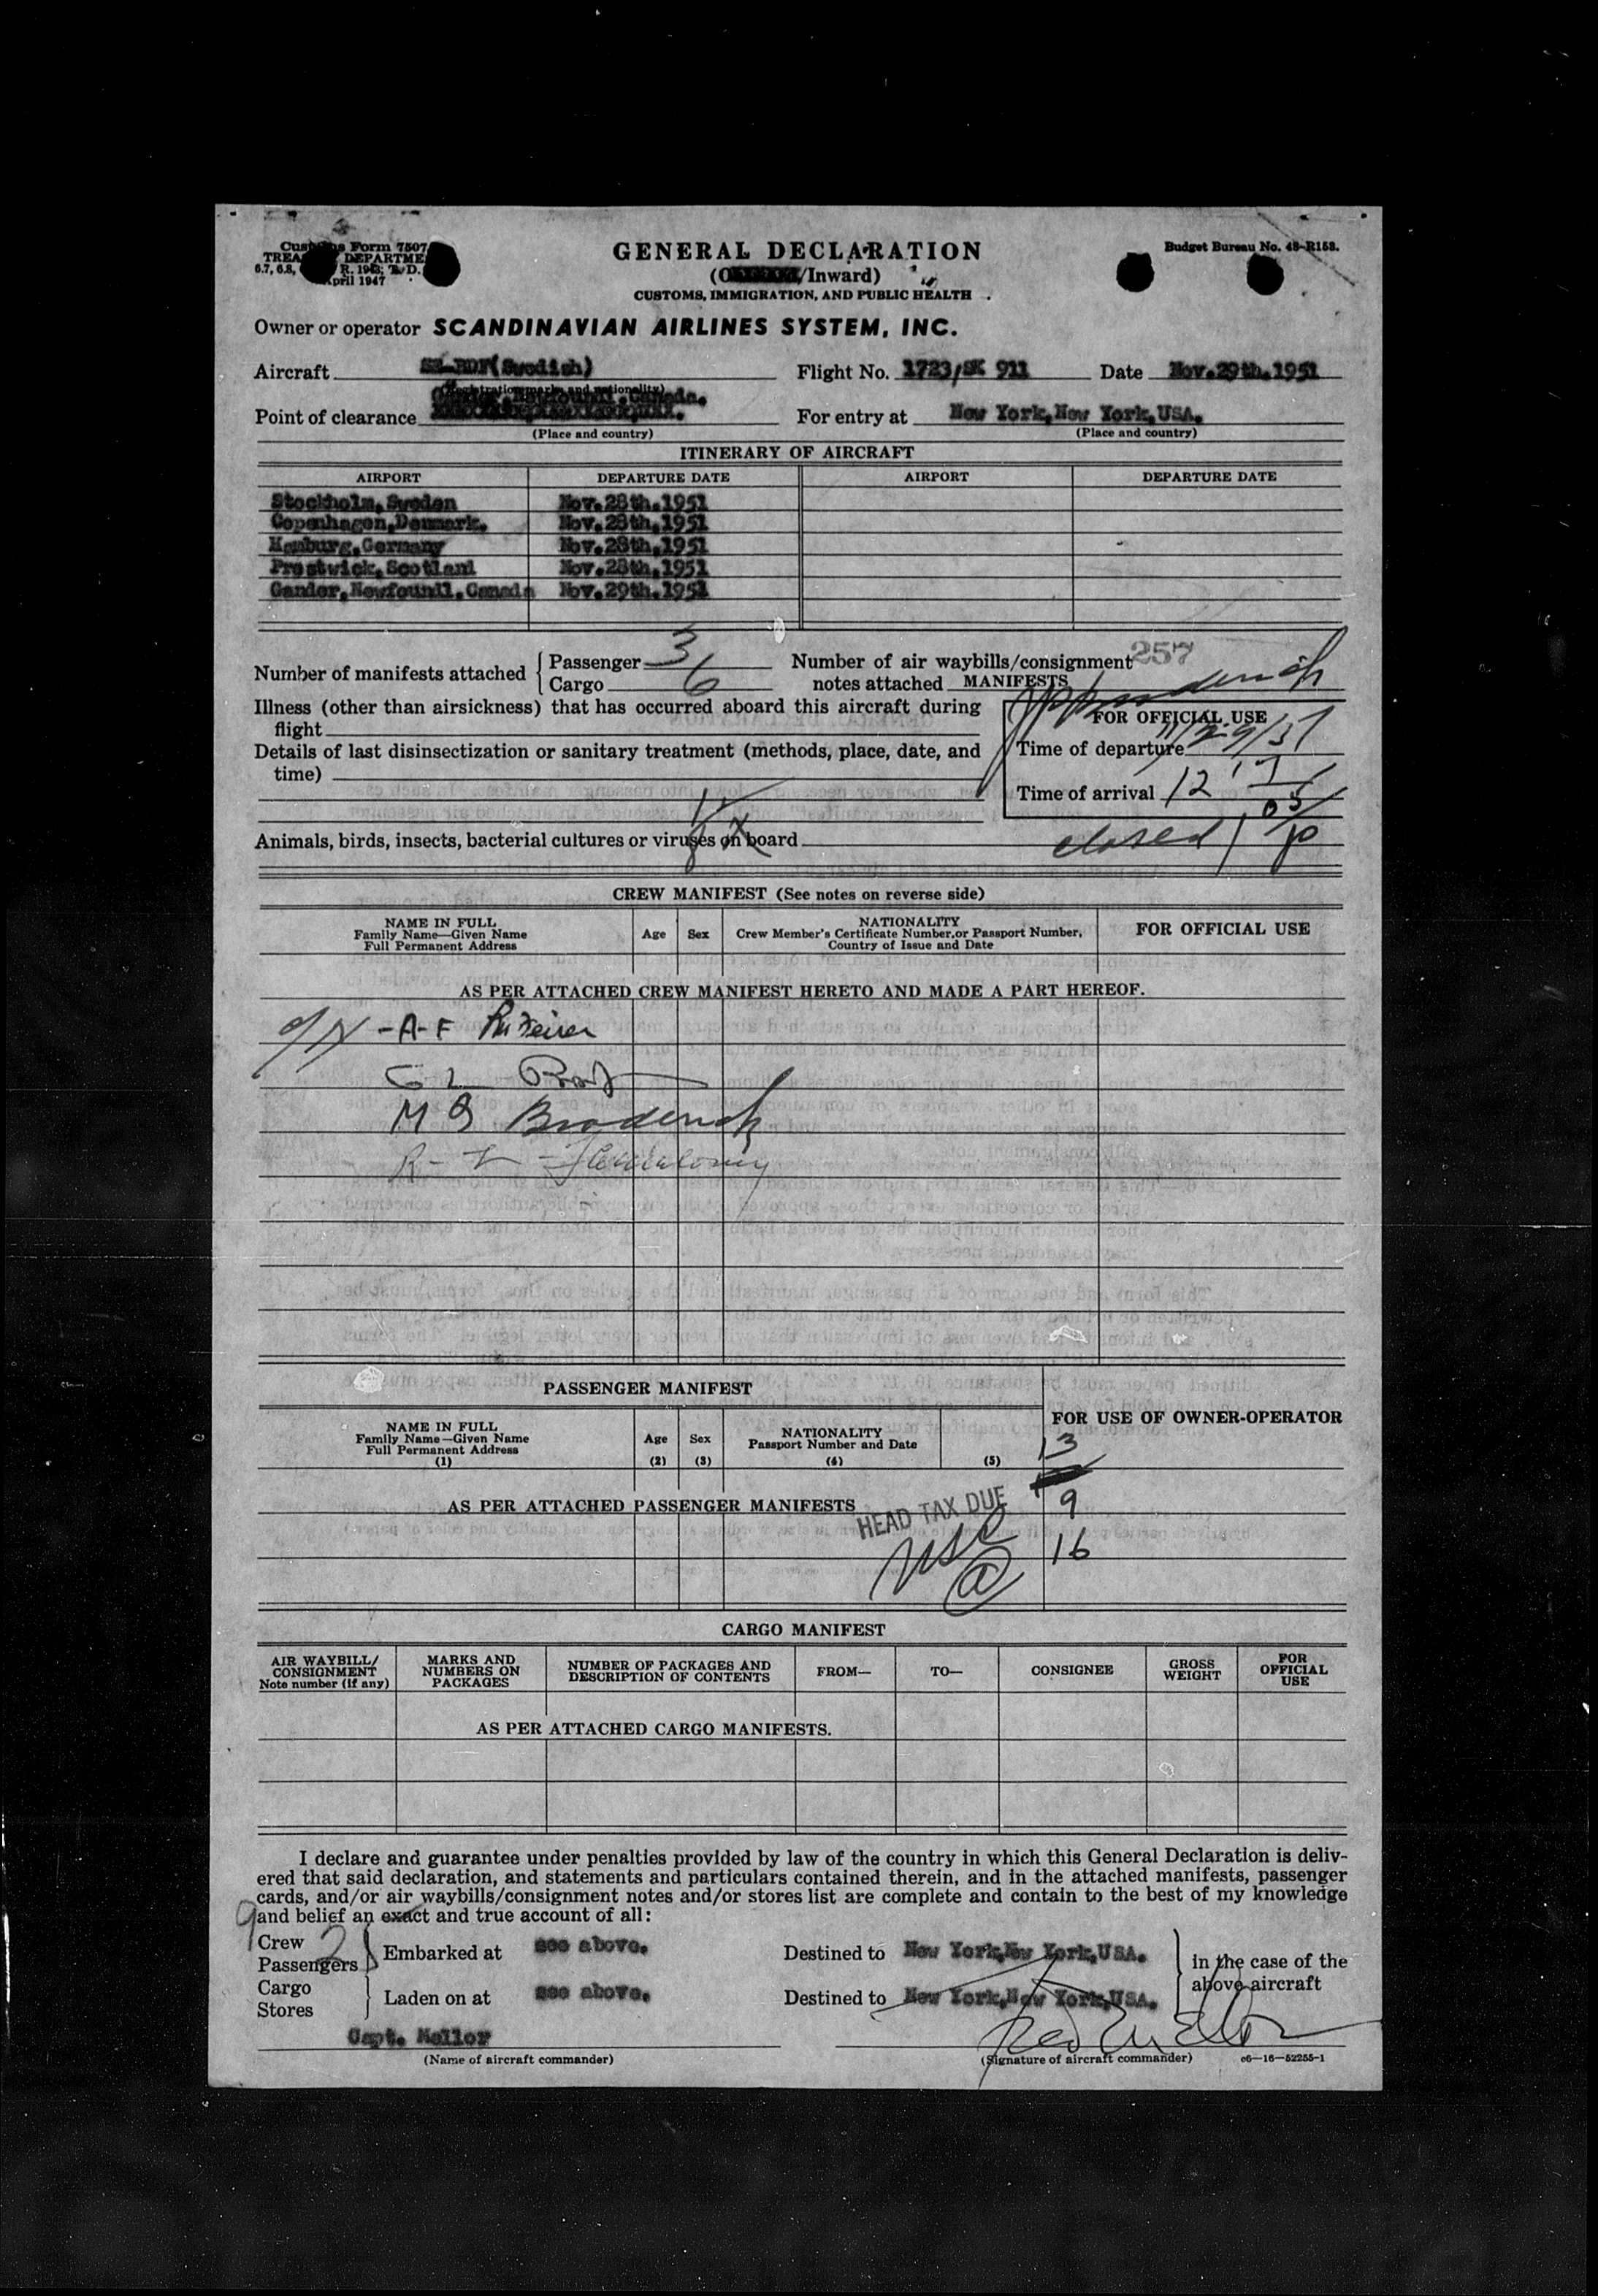 Customs Form 7507
TREASURY DEPARTMENT
6.7, 6.8, R. 1943; T. D.
April 1947
GENERAL DECLARATION
Budget Bureau No. 48-R158.
/Inward)
CUSTOMS, IMMIGRATION, AND PUBLIC HEALTH
Owner or operator SCANDINAVIAN AIRLINES SYSTEM, INC.
Aircraft SE-BDF(Swedish) Flight No. 1723/SK 911 Date Nov.29th.1951
(Registration marks and nationality)
Gander, Newfoundl.Canada.
Point of clearance For entry at New York,New York,USA.
(Place and country) (Place and country)
ITINERARY OF AIRCRAFT
AIRPORT DEPARTURE DATE AIRPORT DEPARTURE DATE
Stockholm,Sweden Nov.28th.1951
Copenhagen,Denmark. Nov.28th.1951
Hamburg,Germany Nov.28th.1951
Prestwick,Scotland Nov.28th.1951
Gander,Newfoundl.Canada Nov.29th.1951
257
Number of manifests attached Passenger 3 Number of air waybills/consignment
Cargo 6 notes attached MANIFESTS
Illness (other than airsickness) that has occurred aboard this aircraft during
flight
FOR OFFICIAL USE
Details of last disinsectization or sanitary treatment (methods, place, date, and
time)
Time of departure 11/29/51
Time of arrival 12
Animals, birds, insects, bacterial cultures or viruses on board
closed
CREW MANIFEST (See notes on reverse side)
NAME IN FULL
Family Name—Given Name
Full Permanent Address
Age Sex
NATIONALITY
Crew Member's Certificate Number, or Passport Number,
Country of Issue and Date
FOR OFFICIAL USE
AS PER ATTACHED CREW MANIFEST HERETO AND MADE A PART HEREOF.
-A-F
G L
M J Broderick
PASSENGER MANIFEST
FOR USE OF OWNER-OPERATOR
NAME IN FULL
Family Name—Given Name
Full Permanent Address
(1)
Age
(2)
Sex
(3)
NATIONALITY
Passport Number and Date
(4) (5)
13
AS PER ATTACHED PASSENGER MANIFESTS
HEAD TAX DUE
9
16
CARGO MANIFEST
AIR WAYBILL/
CONSIGNMENT
Note number (if any)
MARKS AND
NUMBERS ON
PACKAGES
NUMBER OF PACKAGES AND
DESCRIPTION OF CONTENTS
FROM— TO— CONSIGNEE
GROSS
WEIGHT
FOR
OFFICIAL
USE
AS PER ATTACHED CARGO MANIFESTS.
I declare and guarantee under penalties provided by law of the country in which this General Declaration is deliv-
ered that said declaration, and statements and particulars contained therein, and in the attached manifests, passenger
cards, and/or air waybills/consignment notes and/or stores list are complete and contain to the best of my knowledge
and belief an exact and true account of all:
Crew
Passengers Embarked at see above. Destined to New York,New York,USA. in the case of the
above aircraft
Cargo
Stores Laden on at see above. Destined to New York,New York,USA.
Capt. Mellor
(Name of aircraft commander) (Signature of aircraft commander) c6—16—52255-1